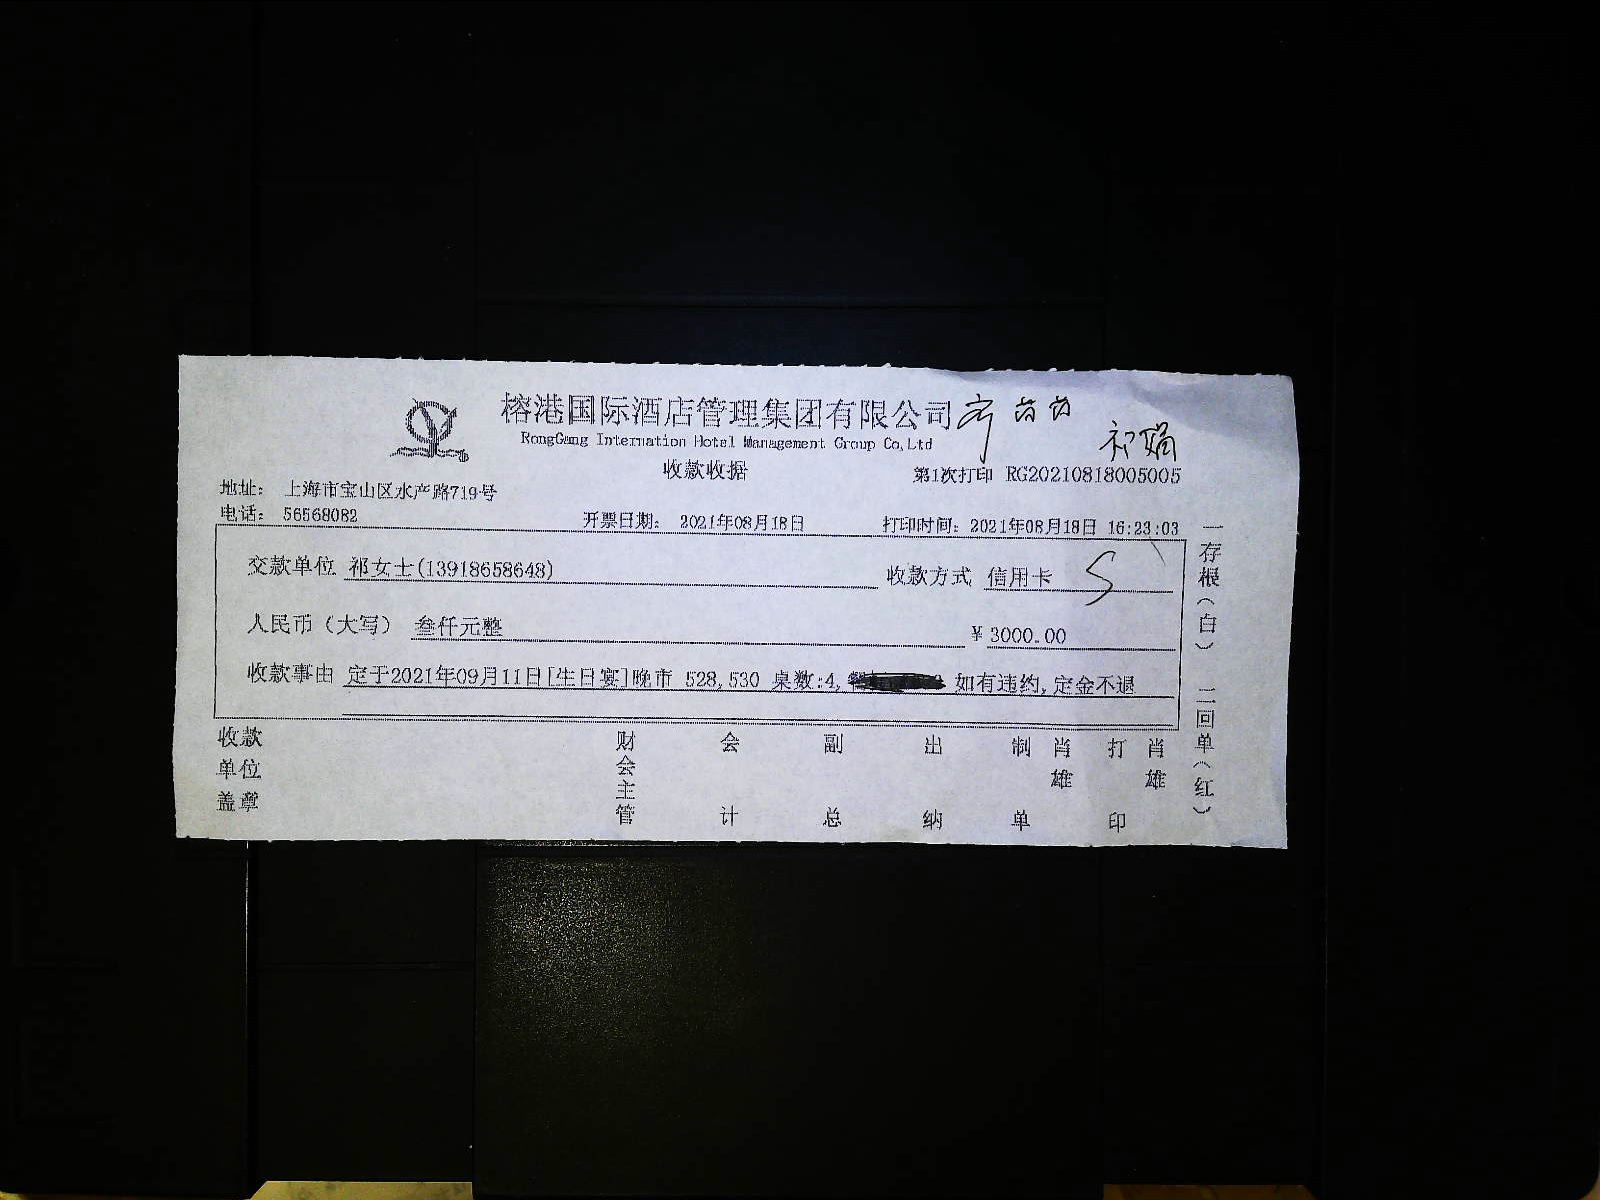 榕港国际酒店管理集团有限公司
RongGang Internation Hotel Management Group Co,Ltd
祁娟
收款收据
第1次打印 RG20210818005005
地址： 上海市宝山区水产路719号
电话： 56568082
开票日期： 2021年08月18日
打印时间：2021年08月18日 16:23:03
交款单位 祁女士(13918658648)
收款方式 信用卡
人民币（大写） 叁仟元整
¥ 3000.00
收款事由 定于2021年09月11日[生日宴]晚市 528,530 桌数:4, 如有违约,定金不退
收款单位盖章
财会主管
会计
副总
出纳
制单
肖雄
打印
肖雄
一存根（白） 二回单（红）